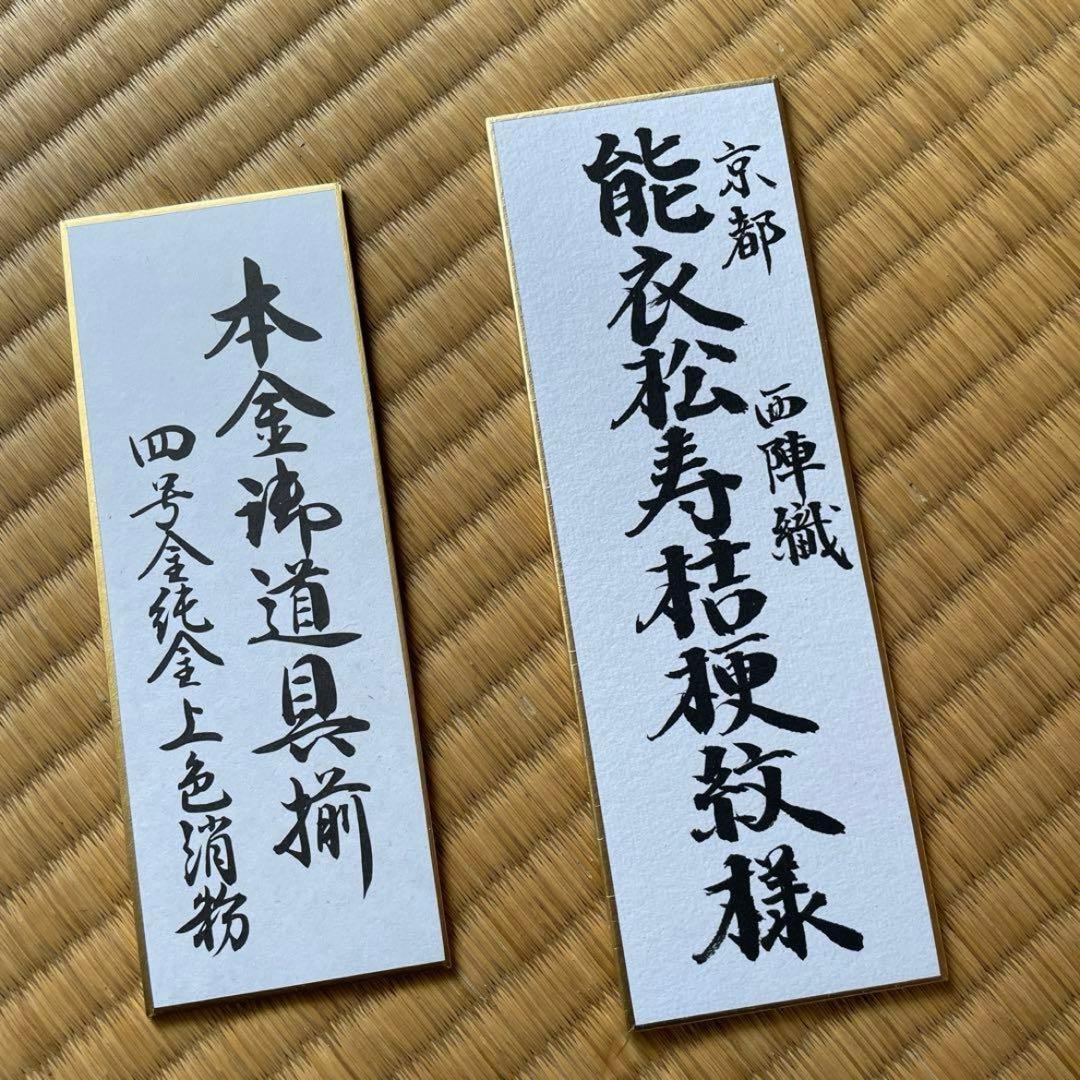 京都 西陣織
能衣松寿桔梗紋様
本金御道具揃
四号金純金上色消粉